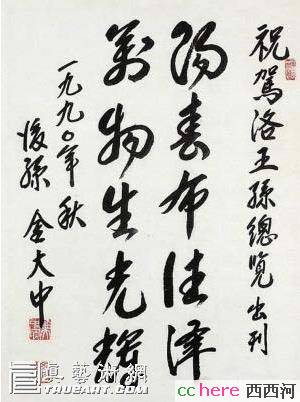 祝駕洛王孫總覽出刊
陽春布德澤
萬物生光輝
一九九〇年秋
後孫 金大中
眞藝術網
TRUEART.NET
cchere 西西河